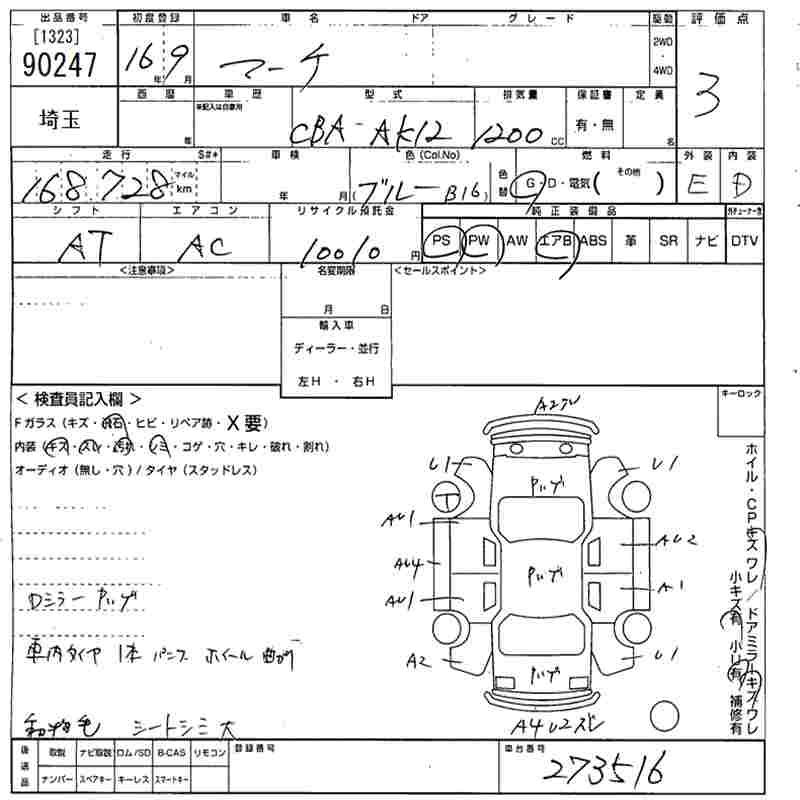 出品番号 初度登録 車名 ドア グレード 駆動 評価点
[1323]
90247 16年 9月 マーチ 2WD・4WD 3
埼玉 西暦 年 車歴 ※記入は自家用 型式 排気量 保証書 定員
CBA-AK12 1200cc 有・無 名
走行 S#* 車検 色(Col.No) 色替 燃料 外装 内装
168,728 マイル km 年 月 (ブルー B16) G・D・電気( その他 ) E D
シフト エアコン リサイクル預託金 純正装備品
AT AC 10010円 PS PW AW エアB ABS 革 SR ナビ DTV
<注意事項> 名変期限 <セールスポイント>
月 日
輸入車
ディーラー・並行
左H ・ 右H
< 検査員記入欄 > キーロック
Fガラス(キズ・飛石・ヒビ・リペア跡・X要)
内装(キズ・スレ・汚れ・シミ・コゲ・穴・キレ・破れ・割れ)
オーディオ(無し・穴)/タイヤ(スタッドレス)
U1 U1
Yハゲ
T
AU1 AU2
AU4 Yハゲ
AU1 A1
Dミラー Yハゲ
車内タイヤ 1本 パンク ホイール曲がり
A2 Yハゲ U1
A4U2ズレ
シートシミ大
ホイル・CPキズワレ/ドアミラーキズワレ
小キズ有 小U有 補修有
後送品 取説 ナビ取説 ロム/SD B-CAS リモコン 登録番号 車台番号
ナンバー スペアキー キーレス スマートキー 273516